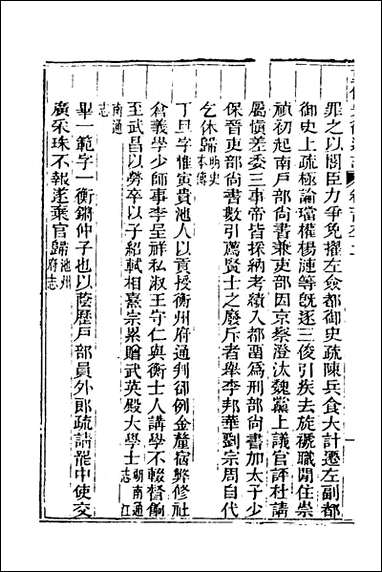 罪之以閣臣力爭免擢左僉都御史疏陳兵食大計遷左副都
御史上疏極論璫權楊漣等旣逐三俊引疾去旋褫職閒住崇
禎初起南戸部尚書兼吏部因京察澄汰魏黨上議官評杜請
屬愼差委三事帝皆採納考績入都畱爲刑部尚書加太子少
保晉吏部尚書數引薦賢士之廢斥者舉李邦華劉宗周自代
乞休歸明史本傳
丁旦字惟寅貴池人以貢授衡州府通判卻例金釐宿弊修社
倉義學少師事李呈祥私淑王守仁與衡士人講學不輟督餉
至武昌以勞卒以子紹軾相熹宗累贈武英殿大學士湖南通志江
南通志
畢一範字一衡鏘仲子也以蔭歷戸部員外郎疏請罷中使交
廣釆珠不報遂棄官歸池州府志